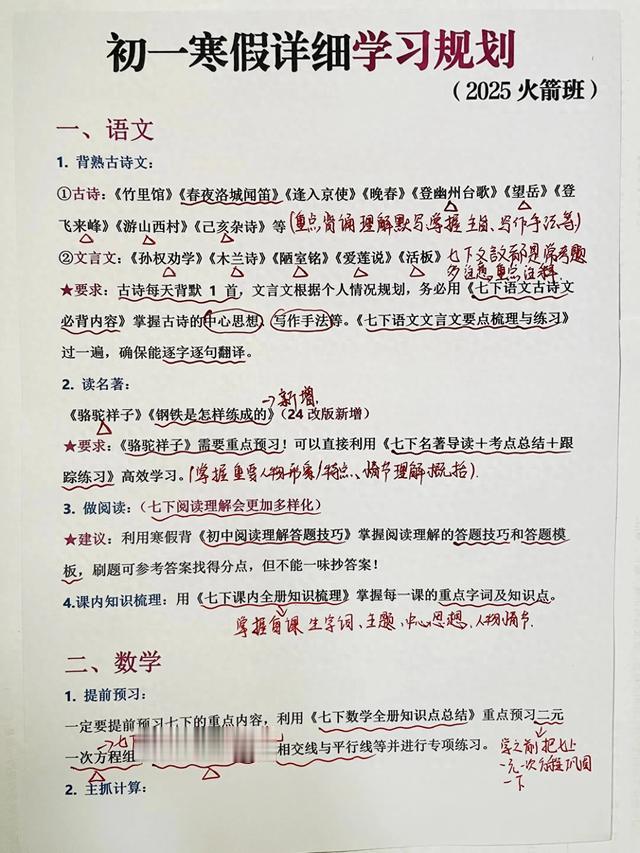 初一寒假详细学习规划
（2025 火箭班）
一、语文
1. 背熟古诗文：
①古诗：《竹里馆》《春夜洛城闻笛》《逢入京使》《晚春》《登幽州台歌》《望岳》《登
飞来峰》《游山西村》《己亥杂诗》等（重点背诵理解默写，掌握主旨、写作手法等）
②文言文：《孙权劝学》《木兰诗》《陋室铭》《爱莲说》《活板》七下文言文都是常考题
多注意重点注释
★要求：古诗每天背默 1 首，文言文根据个人情况规划，务必用《七下语文古诗文
必背内容》掌握古诗的中心思想、写作手法等。《七下语文文言文要点梳理与练习》
过一遍，确保能逐字逐句翻译。
2. 读名著：
→新增
《骆驼祥子》《钢铁是怎样练成的》（24 改版新增）
★要求：《骆驼祥子》需要重点预习！可以直接利用《七下名著导读＋考点总结＋跟
踪练习》高效学习。（掌握重要人物形象/特点、情节理解概括）.
3. 做阅读：（七下阅读理解会更加多样化）
★建议：利用寒假背《初中阅读理解答题技巧》掌握阅读理解的答题技巧和答题模
板，刷题可参考答案找得分点，但不能一味抄答案！
4.课内知识梳理：用《七下课内全册知识梳理》掌握每一课的重点字词及知识点。
掌握每课 生字词、主题、中心思想、人物情节
二、数学
1. 提前预习：
一定要提前预习七下的重点内容，利用《七下数学全册知识点总结》重点预习二元
→七下
一次方程组 相交线与平行线等并进行专项练习。
学之前把七上
一元一次方程巩固
一下
2. 主抓计算：